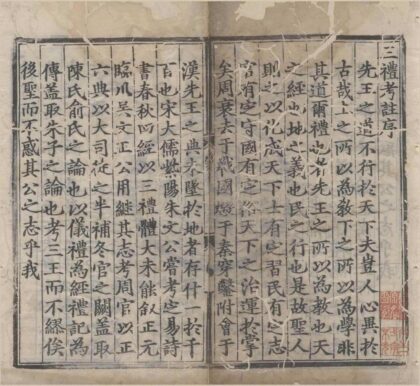 三禮考註序
先王之道不行於天下夫豈人心異於
古哉上之所以為教下之所以為學非
其道爾禮也者先王之所以為教也天
之經也地之義也民之行也是故聖人
則之以化成天下上有定習民有定志
官有定守國有定俗天下之治運於掌
矣周衰去于戰國燬于秦穿鑿附會于
漢先王之典未墜於地者存什一於千
百也宋大儒紫陽朱文公嘗考定易詩
書春秋四經以三禮體大未能敘正元
臨川吳文正公用繼其志考周官以正
六典以大司徒之半補冬官之闕蓋取
陳氏俞氏之論也以儀禮為經禮記為
傳蓋取朱子之論也考三王而不繆俟
後聖而不惑其公之志乎我